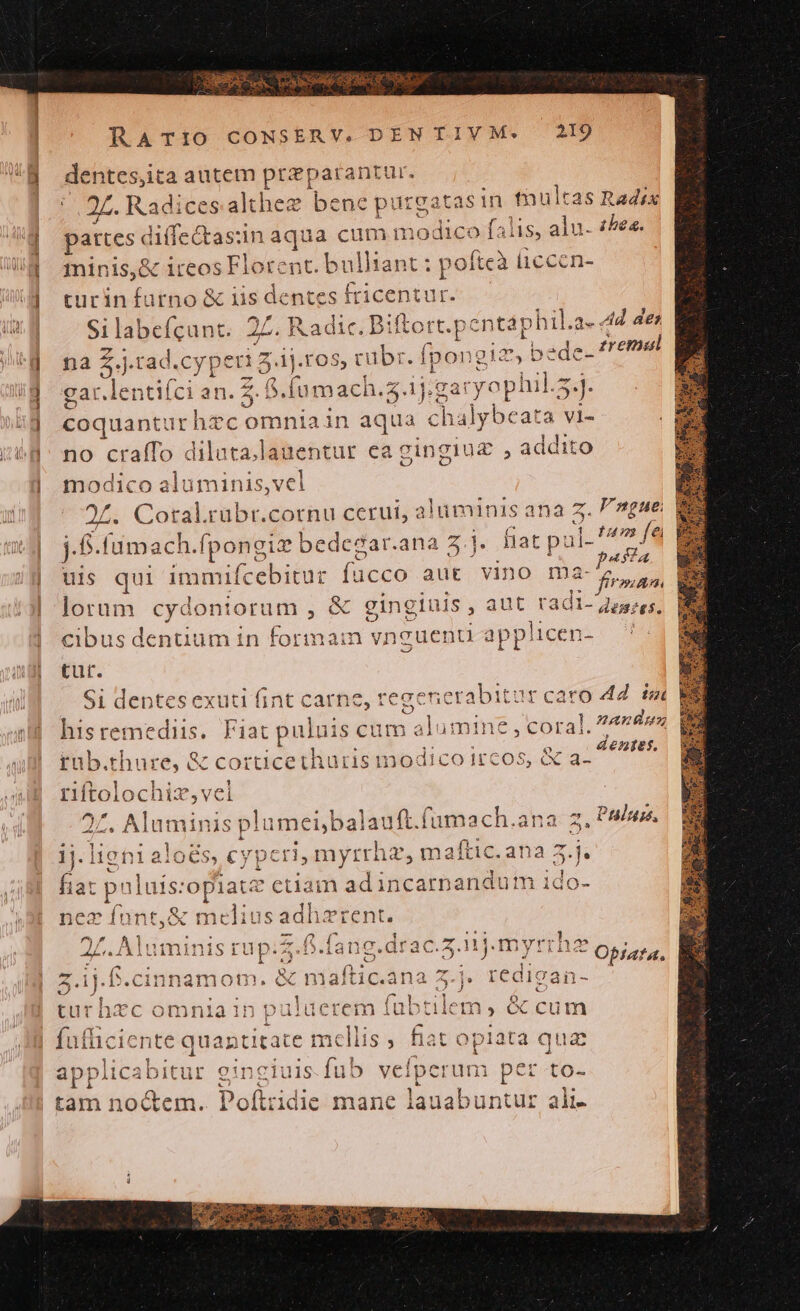 RATIO CONSERV. DENTIVM. 219
dentes,ita autem præparantur.
℞. Radices altheæ bene purgatas in multas Radix
partes diſſectas:in aqua cum modico ſalis, alu- thea.
minis,& ireos Florent. bulliant : poſteà ſiccen-
tur in furno & iis dentes fricentur.
Si labeſcunt. ℞. Radic. Biſtort.pentaphil.a- Ad den
na ℥.j.rad.cyperi ʒ.ij.ros, rubr. ſpongiæ, bede- tremul
gar.lentiſci an. ℥.ß.ſumach.ʒ.ij.garyophil.ʒ.j.
coquantur hæc omnia in aqua chalybeata vi-
no craſſo diluta,lauentur ea gingiuæ , addito
modico aluminis,vel
℞. Coral.rubr.cornu cerui, aluminis ana ʒ. Vngue
j.ß.ſumach.ſpongiæ bedegar.ana ʒ.j. fiat pul- tum ſe
uis qui immiſcebitur ſucco aut vino ma- paſta
firman.
lorum cydoniorum , & gingiuis, aut radi- dentes.
cibus dentium in formam vnguenti applicen-
tur.
Si dentes exuti ſint carne, regenerabitur caro Ad in
his remediis. Fiat puluis cum alumine , coral. nandum
rub.thure, & corticethuris modico ireos, & a- dentes.
riſtolochiæ,vel
℞. Aluminis plumei,balauſt.ſumach.ana ʒ. Puluis.
ij.ligni aloës, cyperi, myrrhæ, maſtic.ana ʒ.j.
fiat puluis:opiatæ etiam ad incarnandum ido-
neæ ſunt,& melius adhærent.
℞.Aluminis rup.ʒ.ß.ſang.drac.ʒ.iij.myrrhæ Opiata.
ʒ.ij.ß.cinnamom. & maſtic.ana ʒ.j. redigan-
tur hæc omnia in puluerem ſubtilem , & cum
ſufficiente quantitate mellis , fiat opiata quæ
applicabitur gingiuis ſub veſperum per to-
tam noctem. Poſtridie mane lauabuntur ali-